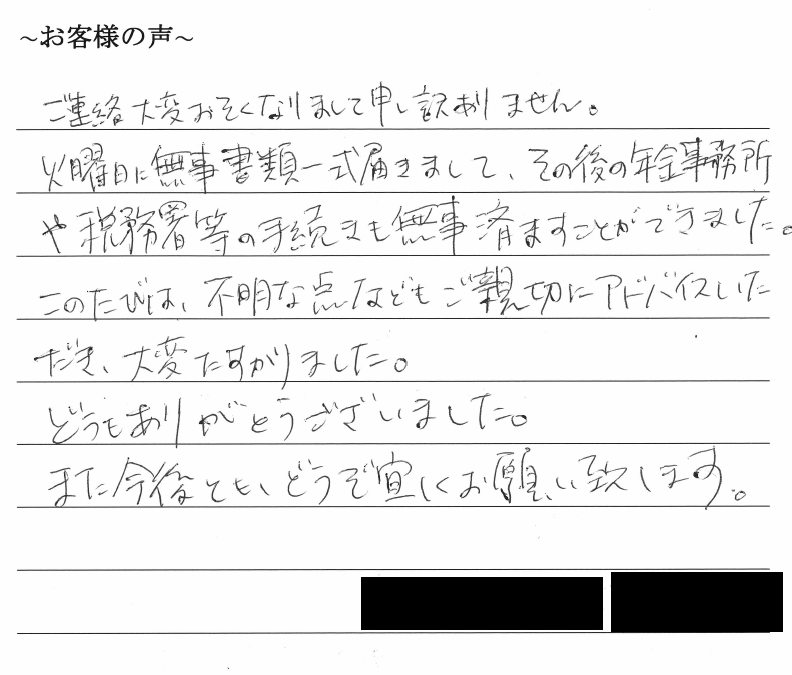 ～お客様の声～
ご連絡大変おそくなりまして申し訳ありません。
火曜日に無事書類一式届きまして、その後の年金事務所
や税務署等の手続きも無事済ますことができました。
このたびは、不明な点などもご親切にアドバイスいた
だき、大変たすかりました。
どうもありがとうございました。
また今後とも、どうぞ宜しくお願い致します。